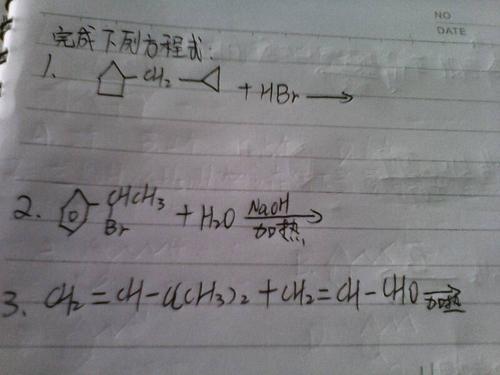 NO
DATE
完成下列方程式:
1. CH2 + HBr →
2. CHCH3 Br + H2O NaOH 加热 →
3. CH2=CH-C(CH3)2 + CH2=CH-CHO 加热 →